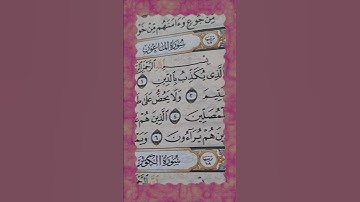 مِّن جُوعٍ وَءَامَنَهُم مِّنْ خَوْ
سُورَةُ المَاعُونِ
بِسْمِ
الَّذِى يُكَذِّبُ بِالدِّينِ ١
ـتِيمِ ٢ وَلَا يَحُضُّ عَلَىٰ طَ
لْمُصَلِّينَ ٤ الَّذِينَ هُمْ
ـنَ هُمْ يُرَآءُونَ ٦ وَيَمْ
سُورَةُ الكَوْثَر